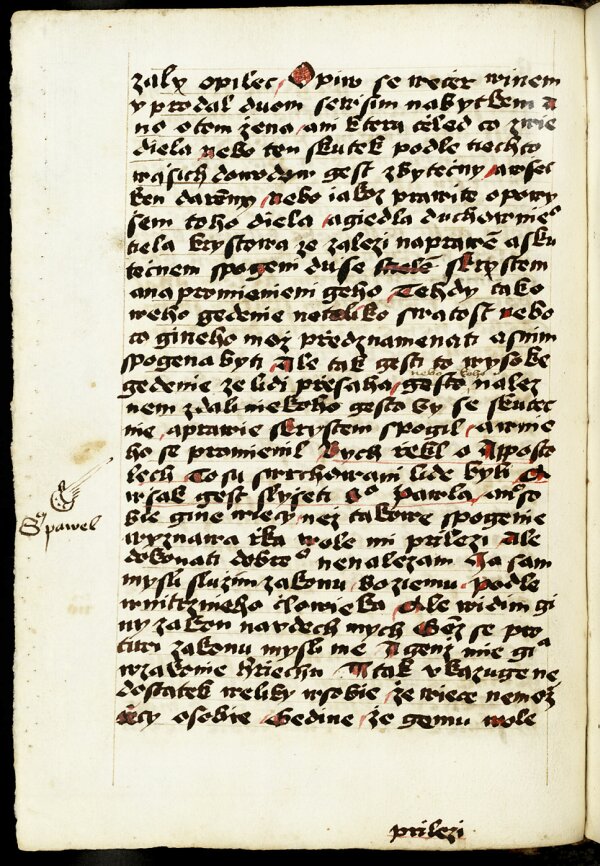 zaly opilec Opiw se wecer winem
y prodal duom sewsim nabytkem A
no otem žena ani ktera čeled co zwie
diela nebo ten skutek podle tiechto
wasich dowodow gest zbytečny awsec
ken daremny nebo iakoz prawite opowy
sem toho diela agiedla duchownieº
tiela krystowa ze zalezi naprawē asku
tečnem spogeni duse skrystem
ana promienieni geho Tehdy tako
weho gedenie netoliko swatost nebo
co gineho moz předznamenati asnim
spogena byti Ale tak gesti to wysoke
gedenie ze lidi přesaha gesto nalez
nebo koho
nem zdali niekoho gesto by se skutec
nie aprawie skrystem spogil awnie
ho se promienil Bych řekl o Apposto
lech To su swrchowani lide byli A
wsak gest slyseti Sº Pawla an so
S pawel
bie gine wiecy nez takowe spogenie
wyznawa řka wole mi prilezi Ale
dokonati dobreº nenalezam Ja sam
mysli sluzim zakonu Boziemu podle
wnitrznieho člowieka Ale widim gi
ny zakon navdech mych Genz se pro
tiwi zakonu mysli me A genz mie gima
wzakonie hriechu A tak vkazuge ne
dostatek weliky wsobie ze wiece nemoz
řecy osobie Gedine ze gemu wole
prilezi